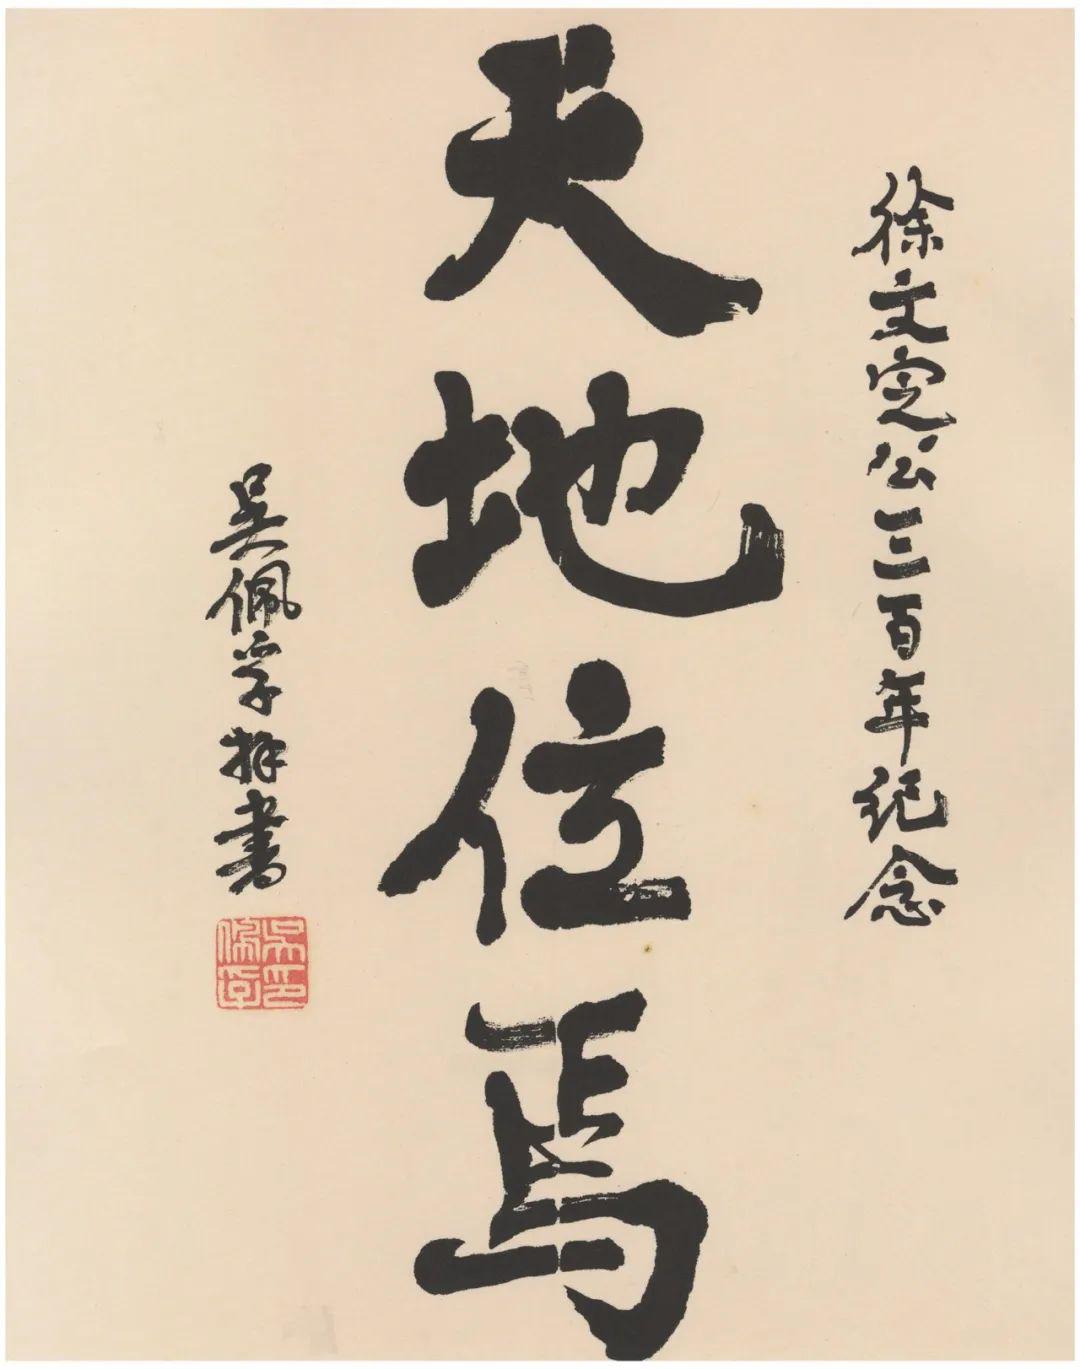 徐文定公三百年纪念
天地位焉
吴佩孚拜书
吴佩孚印